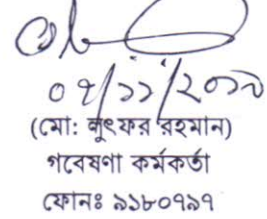 ০৭/১১/২০১৯
(মো: লুৎফর রহমান)
গবেষণা কর্মকর্তা
ফোনঃ ৯১৮০৭৯৭